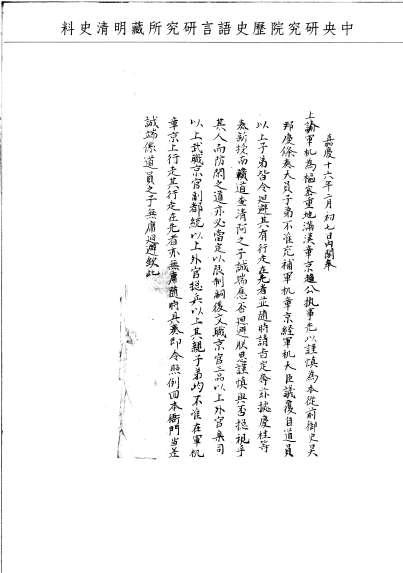 中央研究院歷史語言研究所藏明清史料
嘉慶十六年二月初七日內閣奉
上諭軍机為樞密重地滿漢章京趨公執事尤以謹慎為本從前御史吳
邦慶條奏大員子弟不准充補軍机章京經軍机大臣議覆自道員
以上子弟皆令迴避其有行走在先者並隨時請旨定奪茲據慶桂等
奏新授甬道查清阿之子誠端應否迴避朕思謹慎與否摠視乎
其人而防閑之道亦必當定以限制嗣後文職京官三品以上外官臬司
以上武職京官副都統以上外官摠兵以上其親子弟均不准在軍机
章京上行走其行走在先者亦無庸隨時具奏即令照例回本衙門當差
誠端係道員之子無庸迴避欽此